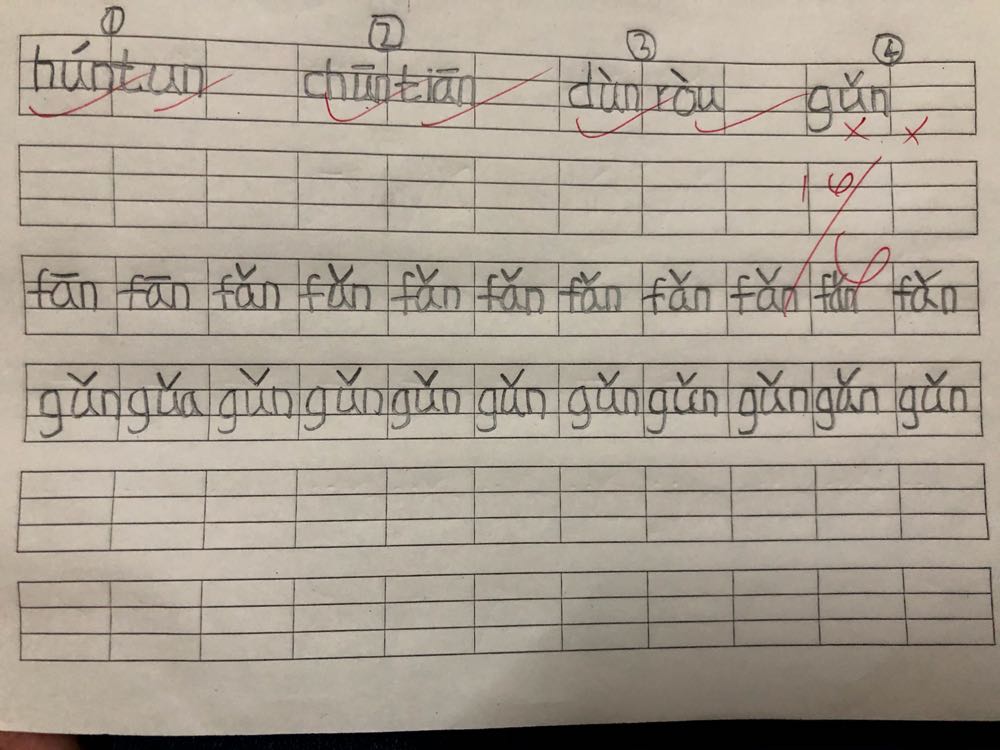 ① ② ③ ④
húntun chūntiān dùn ròu gǔn
16
fān fān fǎn fǎn fǎn fǎn fǎn fǎn fǎn fǎn fǎn
gǔn gǔa gǔn gǔn gǔn gǔn gǔn gǔn gǔn gǔn gǔn